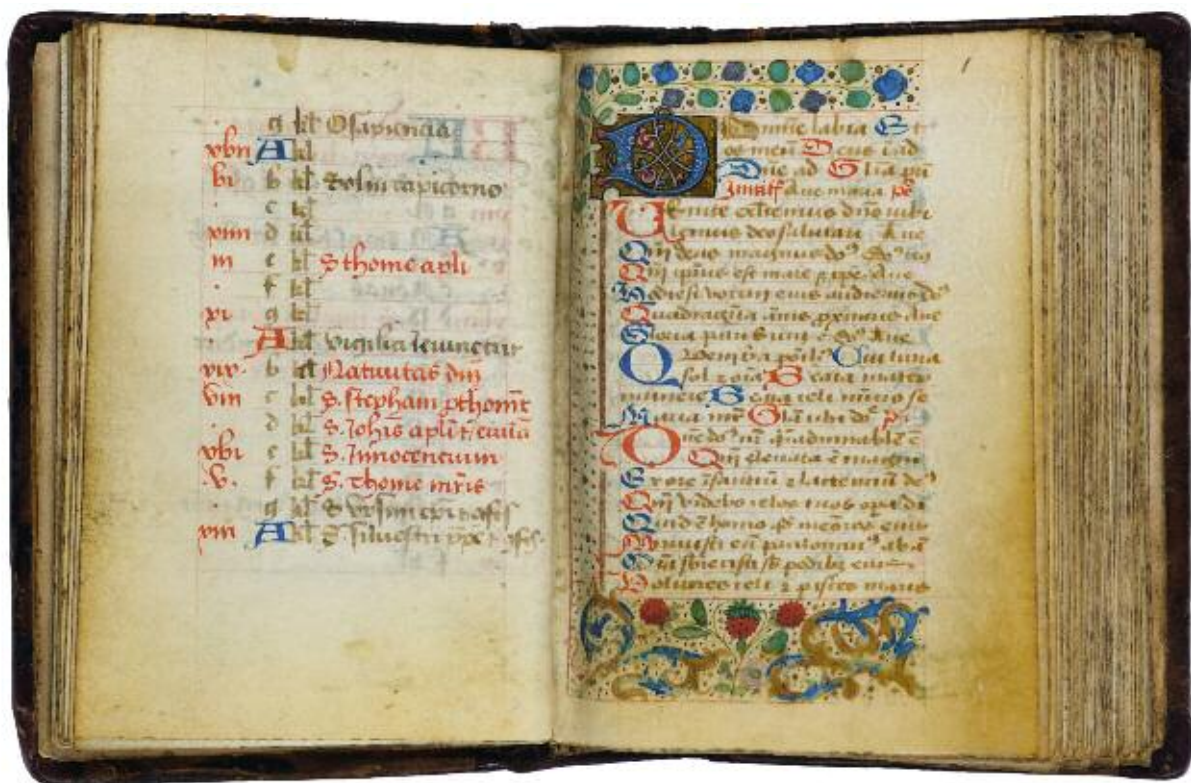 g kl Osapiencia
xvii A kl
vi b kl Sol in capicorno
c kl
xiiii d kl
iii e kl S thome apli
f kl
xi g kl
A kl vigilia ieiunetur
xix b kl Natiuitas dni
viii c kl S. stephani pthom
d kl S. Johis apli & euua
xvi e kl S. Innocencium
v. f kl S. thome mris
g kl S Ursini epi
xiii A kl S siluestri ppe
1
Domine labia Et
os meu Deus i ad
Dne ad Glia pri
Inuit Aue maria ps
Uenite exultemus dno iubi
lemus deo salutari Aue
Qm deus magnus
Qm ipsius est mare & ipse Aue
Hodie si vocem eius audieritis
Quadraginta annis proximus Aue
Gloria patri Aue
Quem terra ponth Cui luna
sol & oia Beata mater
munere Beata celi nuncio se
Maria mr Gla tibi do ps
Dne do nr q admirabile e
Qm eleuata e magni
Ex ore ifantiu & lactentiu
Qm videbo celos tuos opa di
Quid e homo qd memor es eius
Minuisti eu paulominus ab a
Oia subiecisti sb pedibz eius
Volucres celi & pisces maris